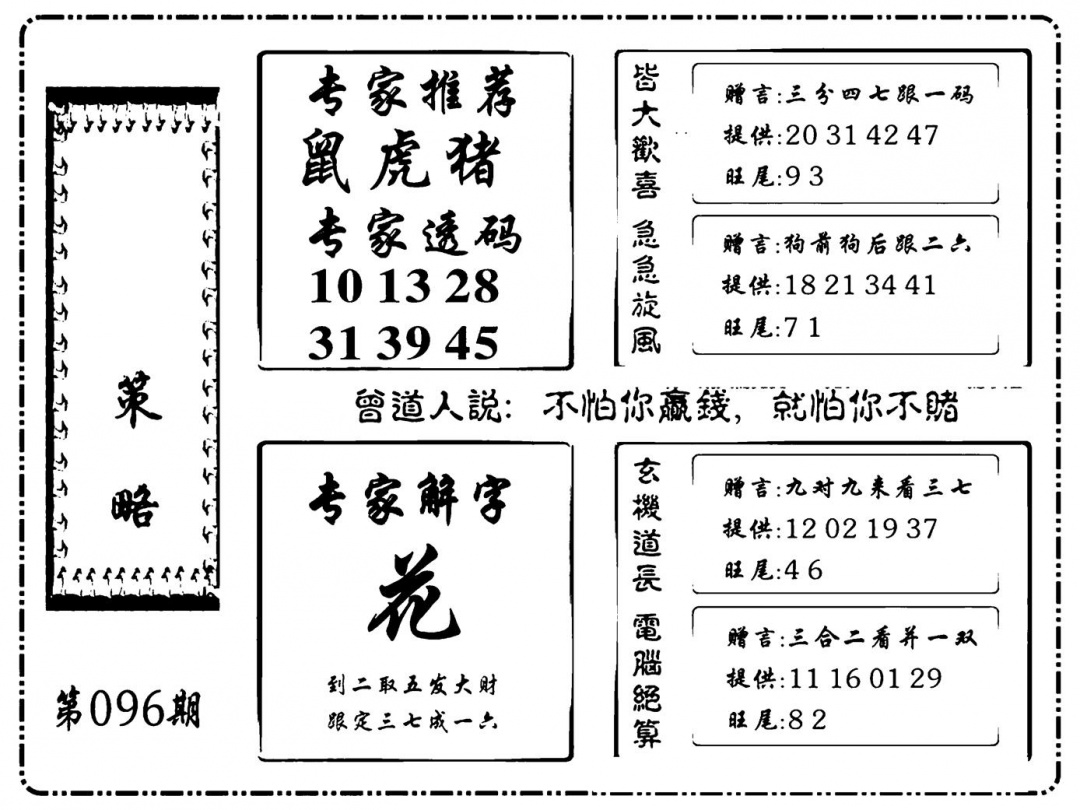 策略
第096期
专家推荐
鼠虎猪
专家透码
10 13 28
31 39 45
皆大歡喜
赠言:三分四七跟一码
提供:20 31 42 47
旺尾:9 3
急急旋風
赠言:狗前狗后跟二六
提供:18 21 34 41
旺尾:7 1
曾道人説: 不怕你贏錢, 就怕你不賭
专家解字
花
到二取五发大财
跟定三七成一六
玄機道長
赠言:九对九来看三七
提供:12 02 19 37
旺尾:4 6
電腦絕算
赠言:三合二看并一双
提供:11 16 01 29
旺尾:8 2